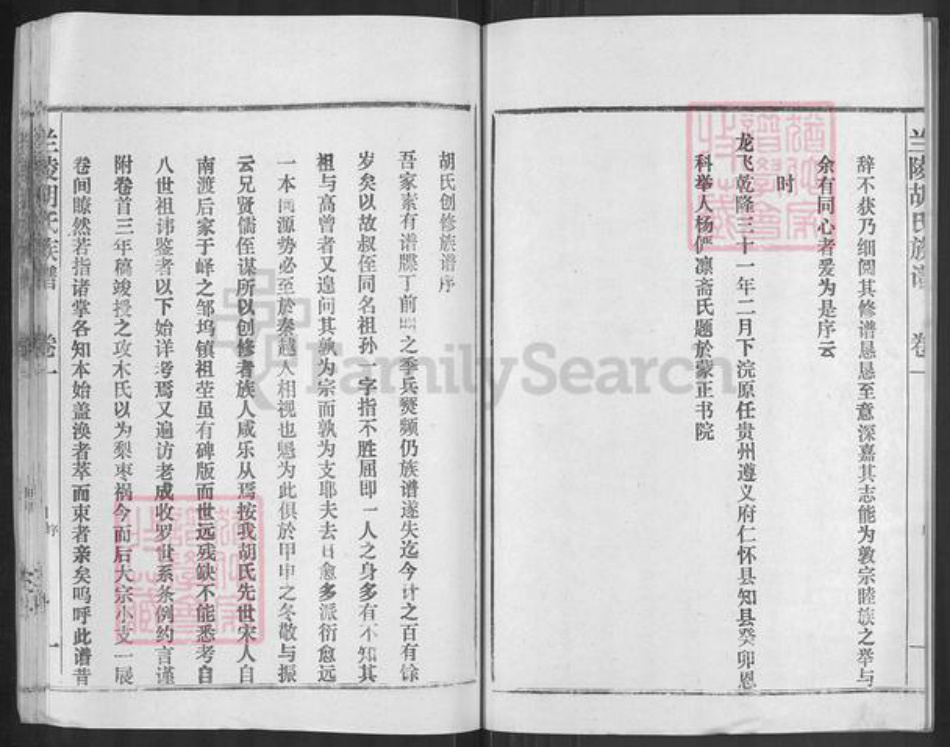 兰陵胡氏族谱 卷一
辞不获乃细阅其修谱恳恳至意深嘉其志能为敦宗睦族之举与
余有同心者爰为是序云
时
龙飞乾隆三十一年二月下浣原任贵州遵义府仁怀县知县癸卯恩
科举人杨俨凛斋氏题於蒙正书院
胡氏创修族谱序
吾家素有谱牒丁前明之季兵燹频仍族谱遂失迄今计之百有馀
岁矣以故叔侄同名祖孙一字指不胜屈即一人之身多有不知其
祖与高曾者又遑问其孰为宗而孰为支耶夫去日愈多派衍愈远
一本同源势必至於秦越人相视也魁为此惧於甲申之冬敬与振
云兄贤儒侄谋所以创修者族人咸乐从焉按我胡氏先世宋人自
南渡后家于峄之邹坞镇祖茔虽有碑版而世远残缺不能悉考自
八世祖讳鉴者以下始详考焉又遍访老成收罗世系条例约言谨
附卷首三年稿竣授之攻木氏以为梨枣祸今而后大宗小支一展
卷间瞭然若指诸掌各知本始盖涣者萃而束者亲矣呜呼此谱昔
兰陵胡氏族谱 卷一 序 一
FamilySearch